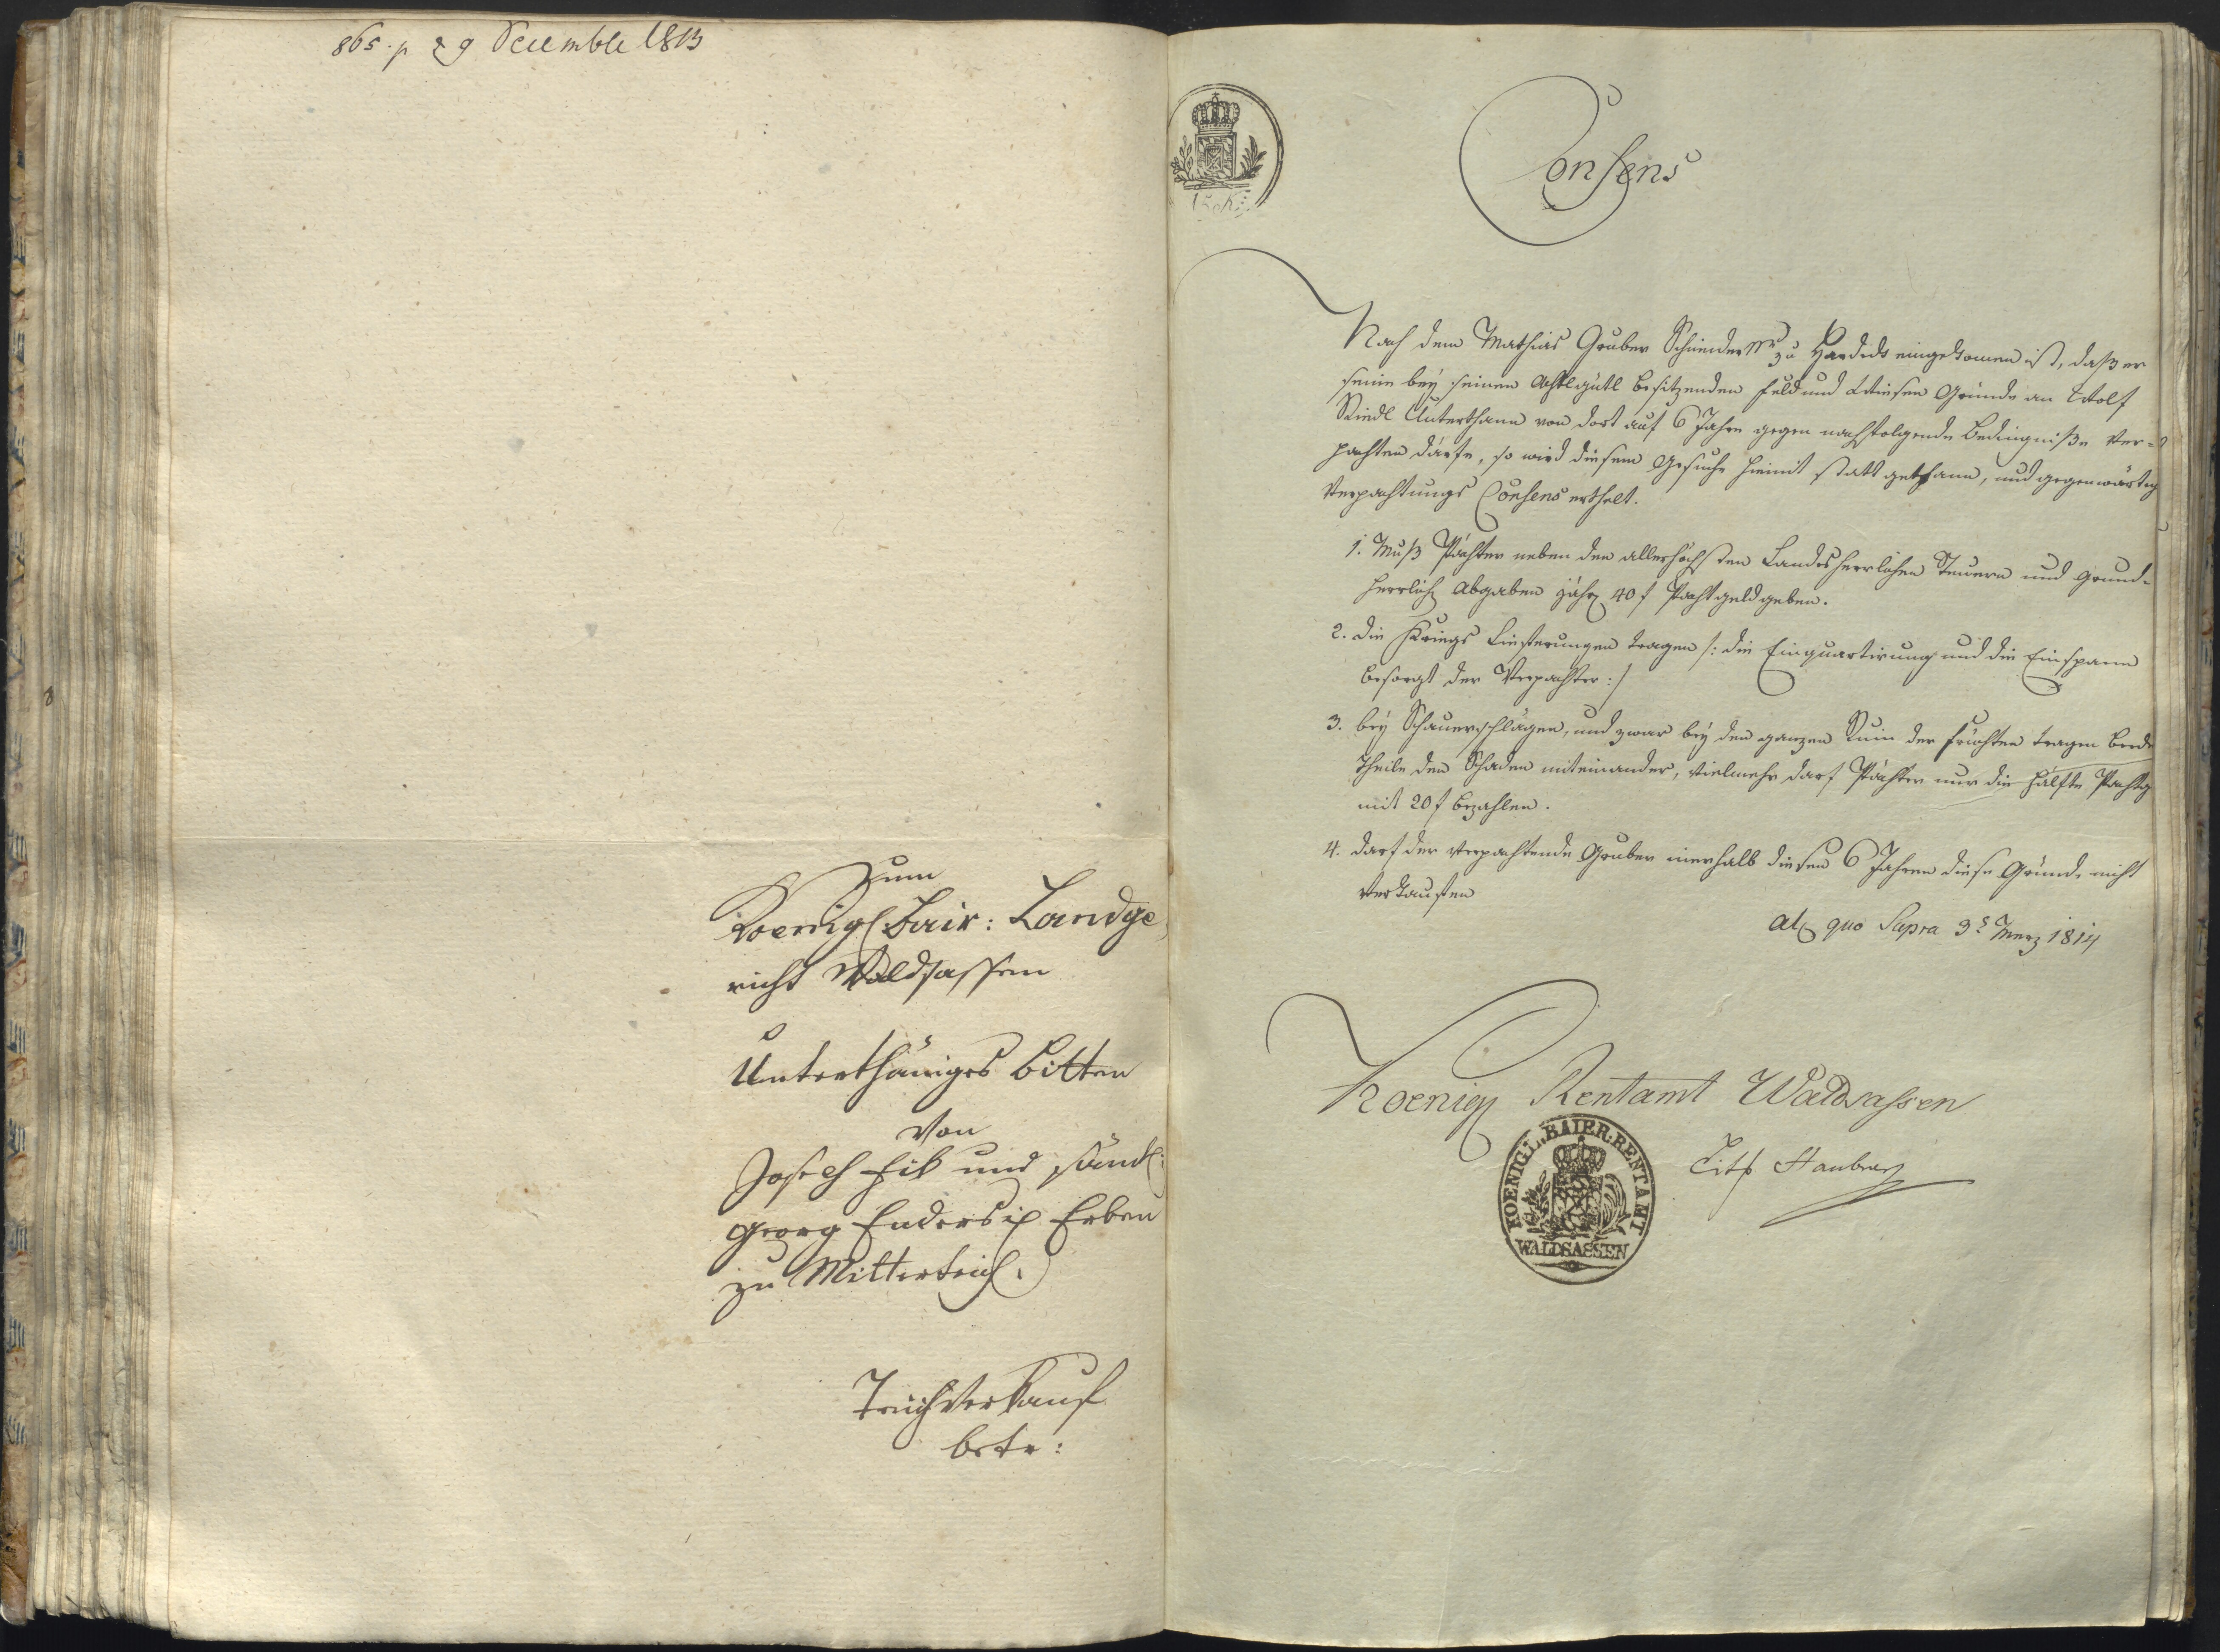 865. p 29 Decemble 1813
Zum
Koenigl Bair: Landge
richt Waldsassen
Unterthäniges Bitten
Von
Joseph Fik und sämtl:
Georg Enders Erben
zu Mitterteich.
Teichverkauf
betr:
Consens
Nach dem Mathias Gruber Schneider zu Hardeck eingekomen ist, daß er
seine bey seinen Achtlgütl besitzenden Feld und Wiesen Gründe an Wolf
Riedl Unterthann von dort auf 6 Jahre gegen nachfolgende Bedingniße Ver=
pachten därfe, so wird diesem Gesuche hiemit statt gethann, und gegenwärtig
Verpachtungs Consens ertheilt.
1. Muß Pächter neben den allerhöchsten Landesherrlichen Steuern und Grund=
herrlich Abgaben jährl 40 f Pachtgeld geben.
2. die Kriegs Lieferungen tragen /: die Einquartirung und die Einspann
besorgt der Verpachter :/
3. bey Schauerschlägen, und zwar bey den ganzen Ruin der Früchten tragen beede
Theile den Schaden miteinander, vielmehr darf Pächter nur die Hälfte Pachtg
mit 20 f bezahlen.
4. darf der Verpachtende Gruber inerhalb diesen 6 Jahren diese Gründe nicht
Verkaufen
quo Supra 3 Merz 1814
Koenigl Rentamt Waldsassen
KOENIGL. BAIER. RENTAMT
WALDSASSEN